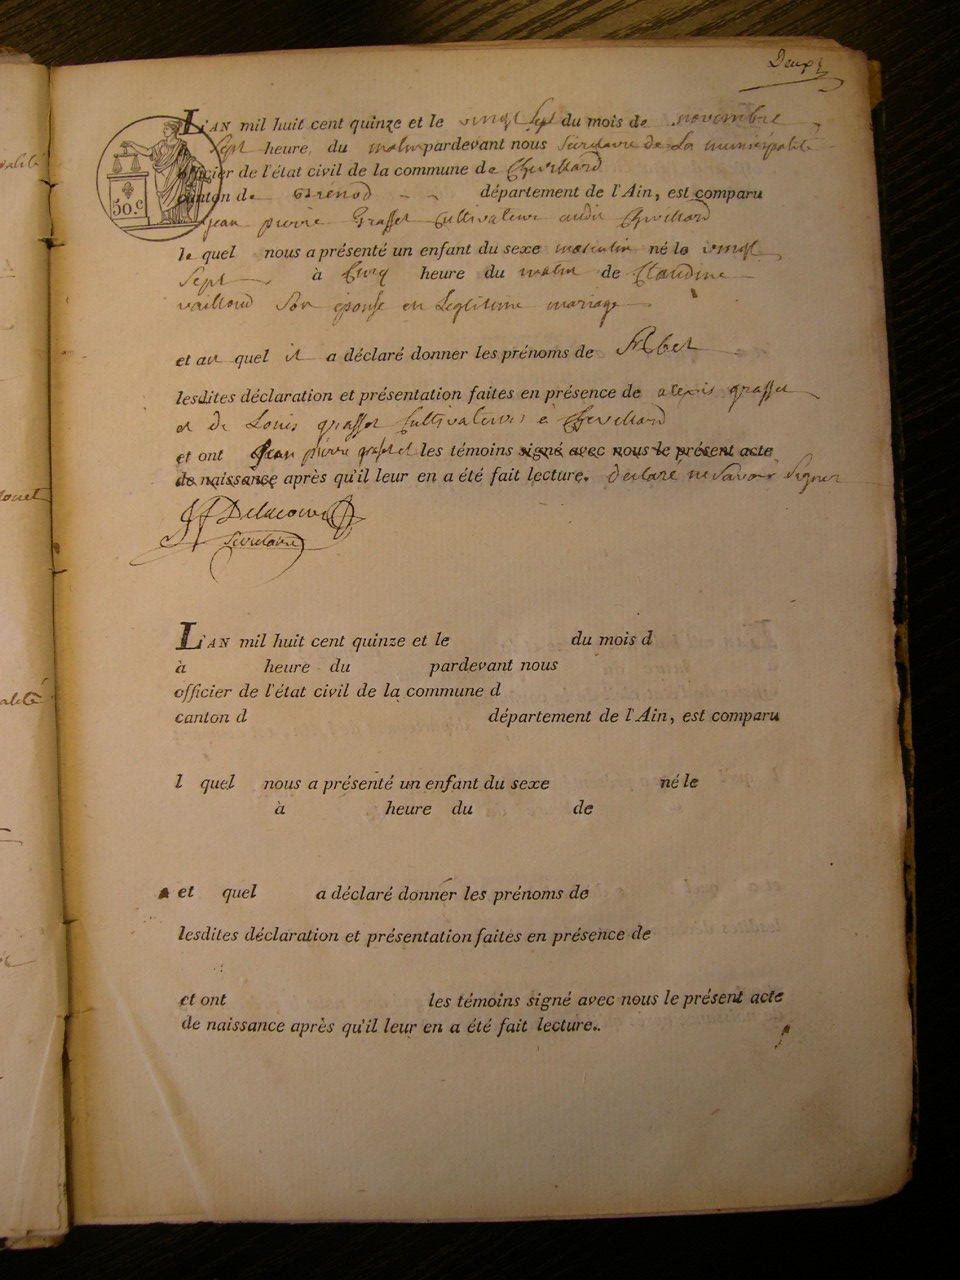 Deux
L'AN mil huit cent quinze et le vingt sept du mois de novembre
Sept heure du matin pardevant nous Secretaire de La municipalité
officier de l'état civil de la commune de Chevillard
canton de Brénod département de l'Ain, est comparu
jean pierre Grasset Cultivateur audit Chevillard
le quel nous a présenté un enfant du sexe masculin né le vingt
Sept à Cinq heure du matin de Claudine
vailloud Son epouse en Legitime mariage
et au quel il a déclaré donner les prénoms de Albert
lesdites déclaration et présentation faites en présence de alexis grasset
et de Louis grasset Cultivateurs à Chevillard
et ont Jean pierre grasset et les témoins signé avec nous le présent acte
de naissance après qu'il leur en a été fait lecture. declaré ne Savoir Signer
Secretaire
50.c
L'AN mil huit cent quinze et le du mois d
à heure du pardevant nous
officier de l'état civil de la commune d
canton d département de l'Ain, est comparu
l quel nous a présenté un enfant du sexe né le
à heure du de
et quel a déclaré donner les prénoms de
lesdites déclaration et présentation faites en présence de
et ont les témoins signé avec nous le présent acte
de naissance après qu'il leur en a été fait lecture.